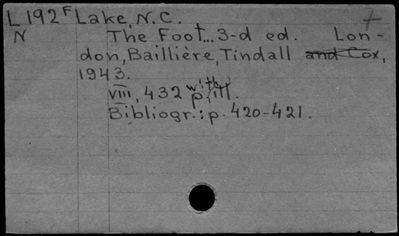 L192F Lake, N.C.
N The Foot... 3-d ed. Lon-
don, Baillière, Tindall and Cox,
1943.
VIII, 432 p. with ill.
Bibliogr.: p. 420-421.